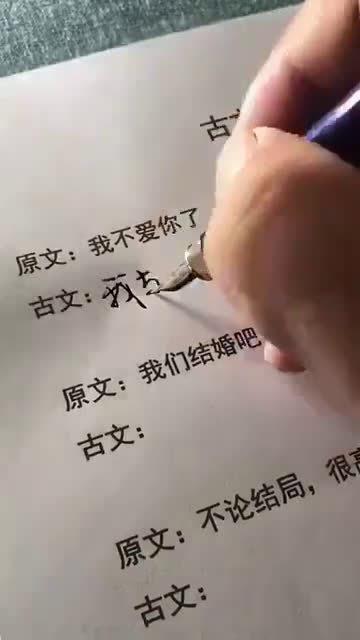 古
原文：我不爱你了
古文：我
原文：我们结婚吧
古文：
原文：不论结局，很高
古文：